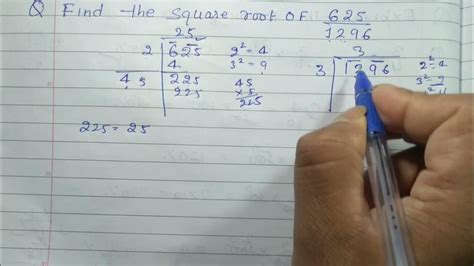 Q Find the square root OF 625
1296
25
2 625 2²=4
4 3²=9
45 225 45
225 ×5
225
225 = 25
3
3 1296 2²=4
3²=9